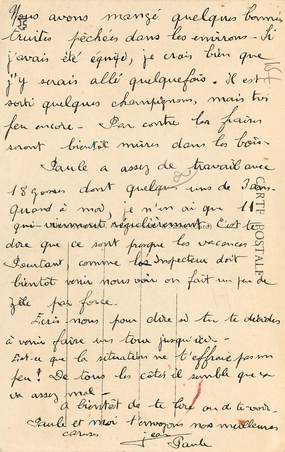 Nous avons mangé quelques bonnes
truites pêchées dans les environs - Si
j'avais été équipé, je crois bien que
j'y serais allé quelquefois. Il est
sorti quelques champignons, mais très
peu encore - Par contre les fraises
seront bientôt mûres dans les bois -
Paule a assez de travail avec
18 gosses dont quelques uns de 3 ans.
Quand à moi, je n'en ai que 11
qui viennent régulièrement C'est te
dire que ce sont presque les vacances.
Pourtant comme les Inspecteur doit
bientôt venir nous voir on fait un peu de
zèle par force.
Ecris-nous pour dire si tu te décides
à venir faire un tour jusqu'ici -
Est-ce que la situation ne t'effraie pas un
peu? De tous les côtés il semble que ça
va assez mal -
à bientôt de te lire ou de te voir.
Paule et moi t'envoyons nos meilleures
caresses Jean
Paule
CARTE POSTALE